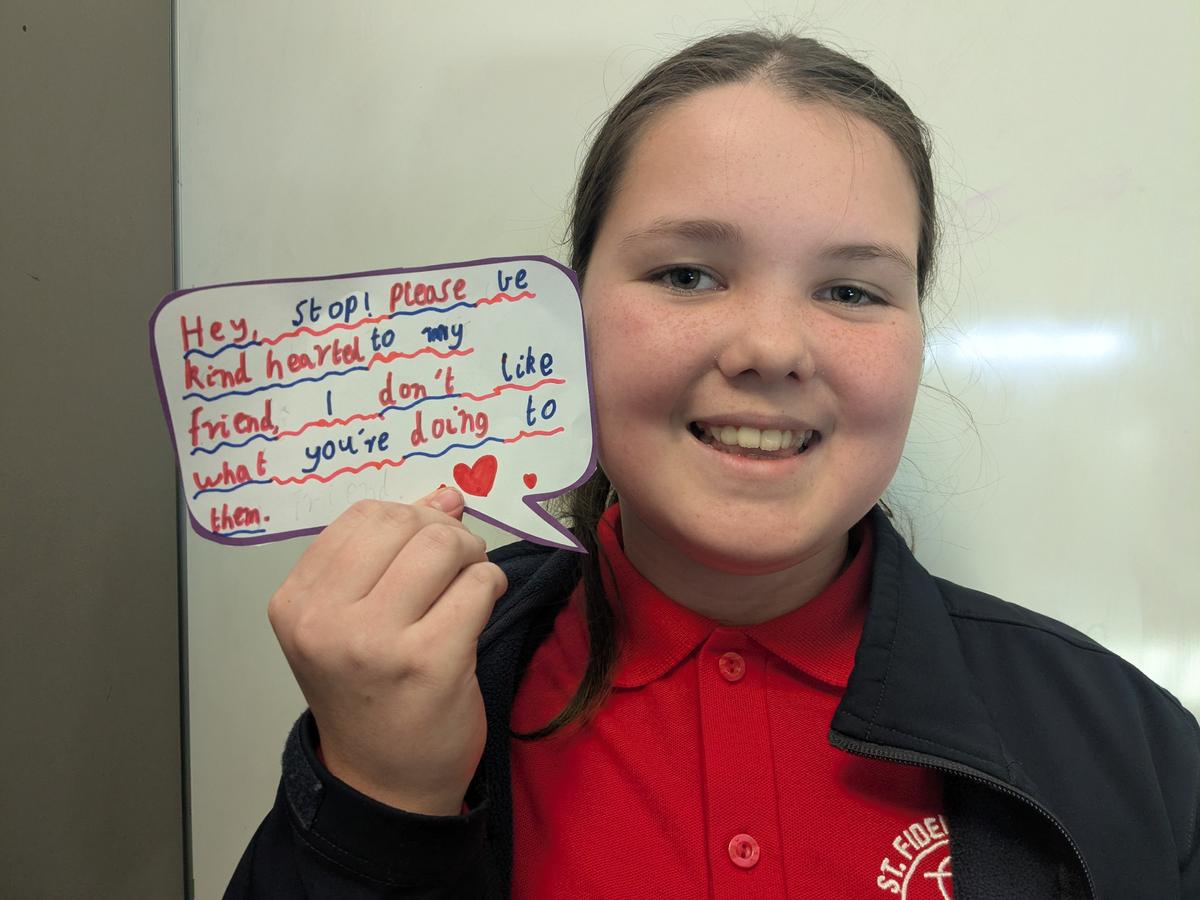 Hey, Stop! Please be
kind heartel to my
friend, I don't like
what you're doing to
them.
friend.
ST. FIDEL